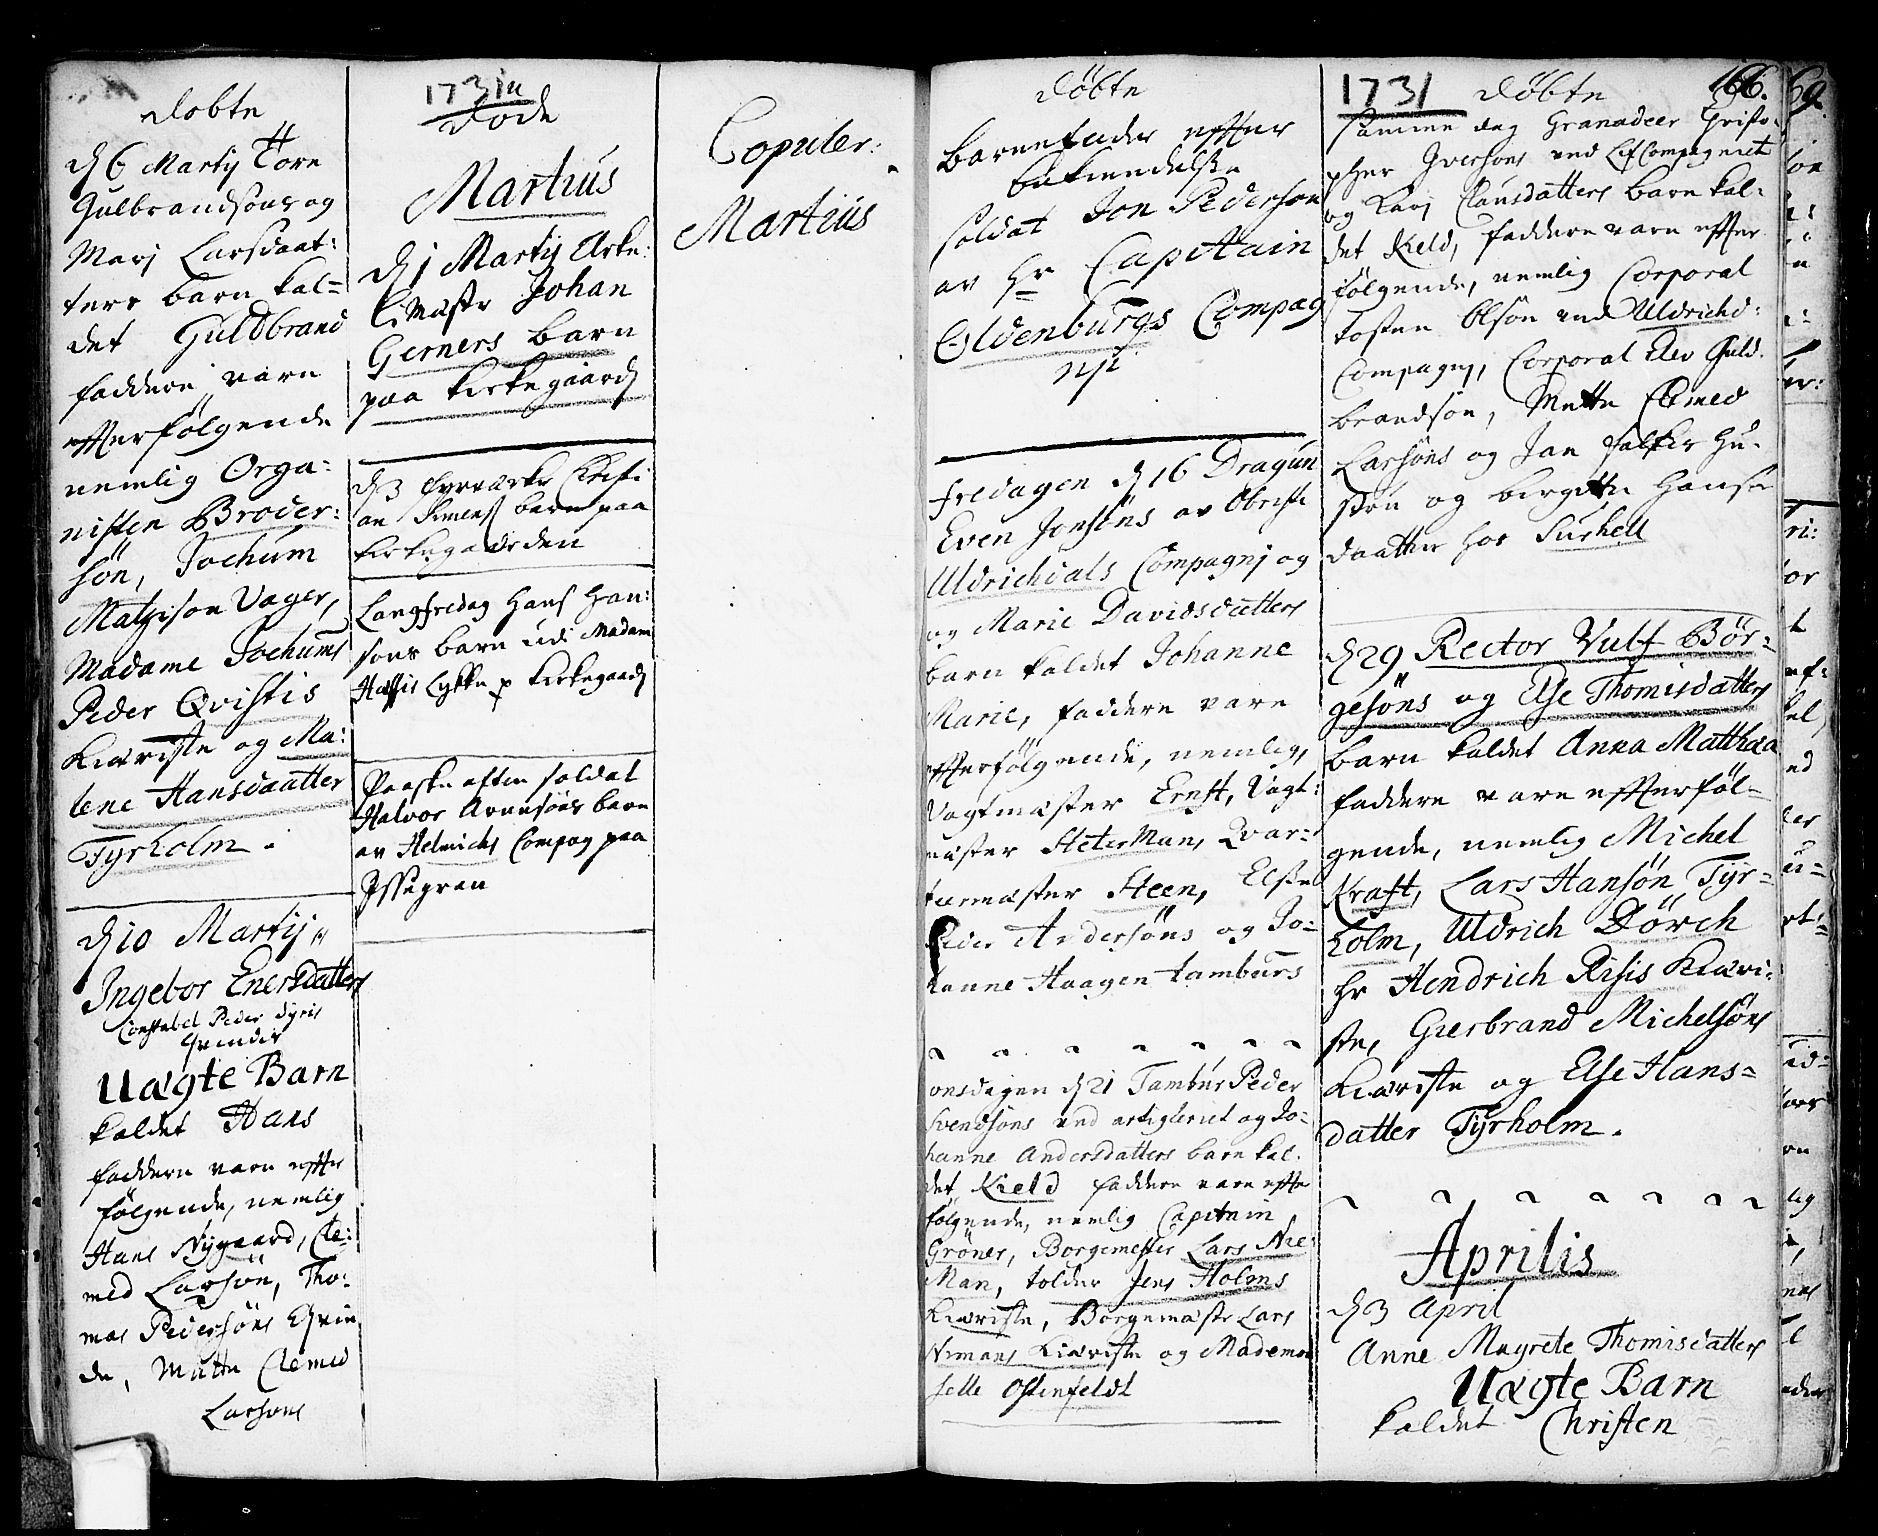 Døbte
d. 6 Martij Tore
Gulbrandsøns og
Mari Larsdaat:
ters barn kal=
det Guldbrand
faddere vare
effterfølgende
nemlig Orga:
nisten Broder:
søn, Jochum
Matzison Vager,
Madame Jochums
Peder Qvistis
Kiæriste og Ma:
lene Hansdaatter
Tyrholm.
d. 10 Martij
Ingebor Enersdatters
Constabel Peder
Uægte Barn
kaldet Hans
faddere vare effter
følgende, nemlig
Hans Nygaard, Cle:
med Larsøn, Tho:
mas Pedersøns Qvin
de, Mette Clemed
Larsøns
1731
Døde
Martius
d. 1 Martij Arke:
limæster Johan
Gerners barn
paa kirkegaard
d. 3 Christi
an barn paa
kirkegaarden
Langfredag Hans Han:
søns barn udi Madam
Lykke p kirkegaard
Paaske aften soldat
Halvor Arnesøns barn
av Helmichs Compag paa
Copuler:
Martius
Døbte
Barnefader effter
bekiendelse
soldat Jon Pedersøn
av Hr Capitain
Oldenburgs Compag
nj
Fredagen d. 16 Dragun
Even Jonsøns av Obrist
Uldrichdals Compagnj og
og Marie Davidsdatters
barn kaldet Johanne
Marie, faddere vare
effterfølgende, nemlig,
Vagtmæster Ernst, Vagt:
mæster Heterman, Qvar=
termæster Steen, Else
Peder Andersøns og Jo=
hanne Haagen tamburs
onsdagen d. 21 Tambur Peder
Svendsøns ved artigleriet og Jo=
hanne Andersdatters barn kal:
det Kield faddere vare effter
følgende, nemlig Capitain
Grøner, Borgemester Lars Nie:
Man, tolder Jens Holms
Kiæriste, Borgemæster Lars
Nimans Kiæriste og Mademoi
selle Ostenfeldt
1731 Døbte 166.
samme dag Granadeer Christo
pher Iversøns ved LifCompagniet
og Kari Clausdatters barn kal=
det Kield, faddere vare effter
følgende, nemlig Corporal
Tosten Olsøn ved Uldrichd:
Compagnj, Corporal Elev Guld
brandsøn, Mette Clemed
Larsøns og Jan Falkis Hu=
stru og birgitte Hans
daatter hos Surhell
d. 29 Rector Vulf Bør=
gesøns og Else Thomisdatters
barn kaldet Anna Matthæa
faddere vare effterføl=
gende, nemlig Michel
Kraft, Lars Hansøn Tyr=
holm, Uldrich Dörch
hr Hendrich Risis Kiæri=
ste, Gierbrand Michelsøns
Kiæriste og Else Hans=
datter Tyrholm.
Aprilis
d. 3 April
Anne Magrete Thomisdatters
Uægte Barn
kaldet Christen